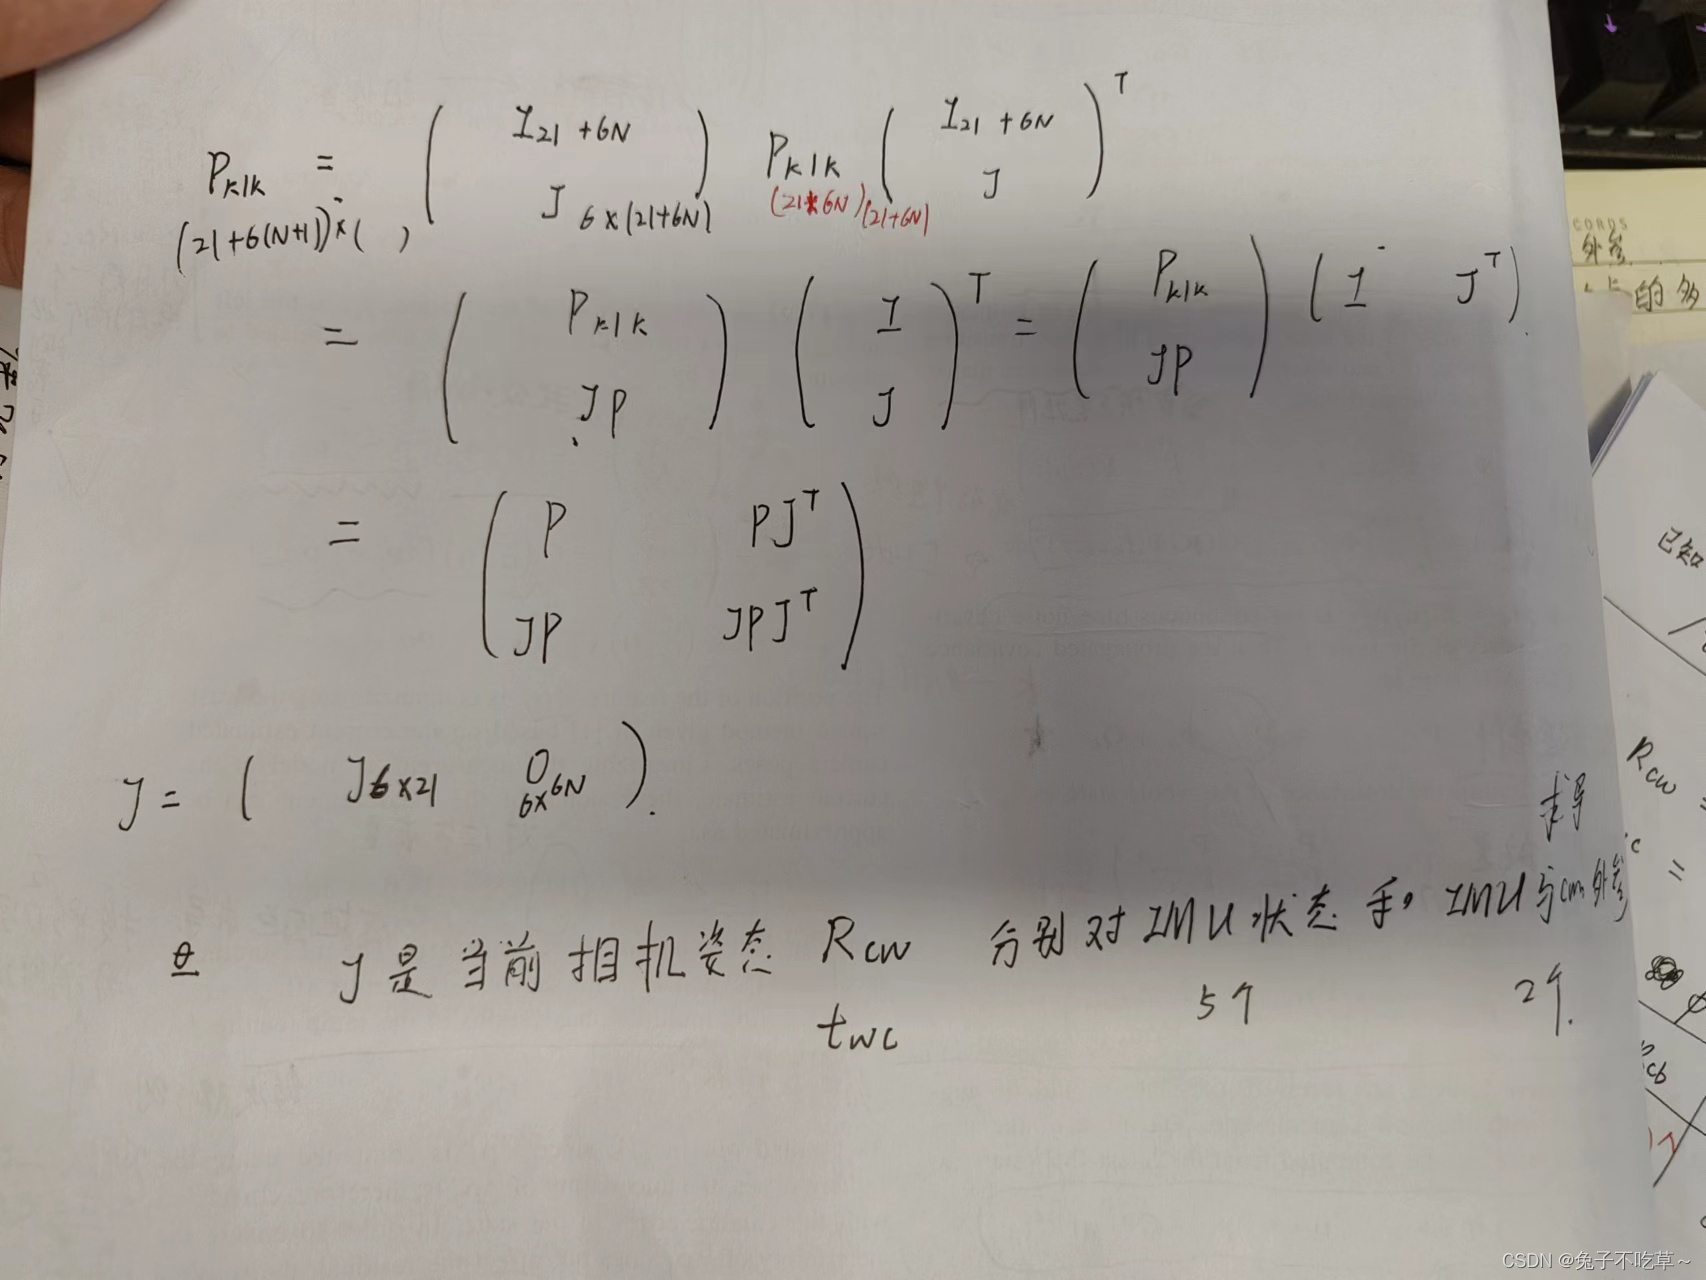 P_{k|k} = ( I_{21+6N} ; J_{6×(21+6N)} ) P_{k|k} ( I_{21+6N} ; J )^T
(21+6(N+1))×( ) (21*6N)(21+6N)
= ( P_{k|k} ; JP ) ( I ; J )^T = ( P_{k|k} ; JP ) ( I J^T ).
= ( P PJ^T ; JP JPJ^T )
J = ( J_{6×21} 0_{6×6N} ).
求导
J是当前相机姿态 R_{cw} 分别对IMU状态 IMU与cam外参
t_{wc} 5个 2个.
外参
的多
已知
R_{cw} =
=
CSDN @兔子不吃草~